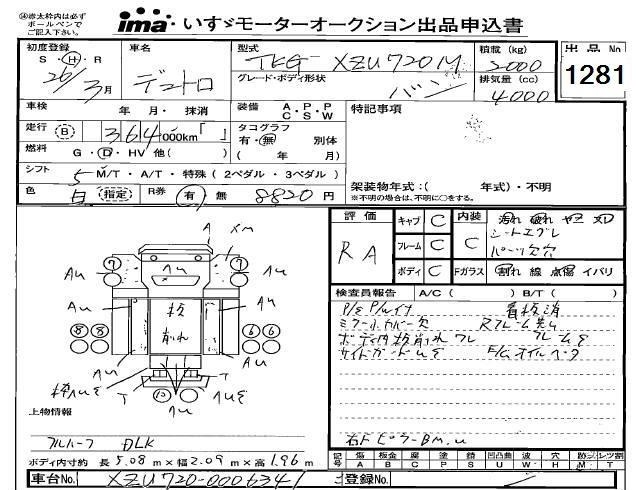 ④赤太枠内は必ず
ボールペンで
ご記入下さい。
ima いすゞモーターオークション出品申込書
初度登録 車名 型式 積載(kg) 出品No
S・H・R 26/3月 デュトロ TKG- XZU720M 2000 1281
グレード・ボディ形状 バン 排気量(cc) 4000
車検 年 月・抹消 装備 A・P・P C S W 特記事項
走行 B 364000km「 」 タコグラフ 有・無 別体
燃料 G・D・HV 他( ) ( 年 月)
シフト 5 M/T・A/T・特殊(2ペダル・3ペダル) 架装物年式:( 年式)・不明
色 白 指定 R券 有 無 8820円 ※不明の場合は、不明に○をする。
評価 RA キャブ C 内装 C 汚れ 破れ ヤニ スレ
フレーム C シートエグレ パーツ欠 穴
ボディ C Fガラス 割れ 線 点傷 イバリ
検査員報告 A/C( ) B/T( )
P/E P/W付 看板消
ミラーカバー欠
ボディ内板削れ
A
Au Au Au
板削れ
7 7 8 8 6 6
T T
上物情報
フルハーフ DLK
右ドピラーBm.u
ボディ内寸約 長 5.08 m×幅 2.09 m×高 1.96 m
記号 傷 板金 腐 塗 錆 凹凸曲 波 穴 跡 レツ割
A B C P S U W H M T
車台No. XZU720-0006341 登録No.